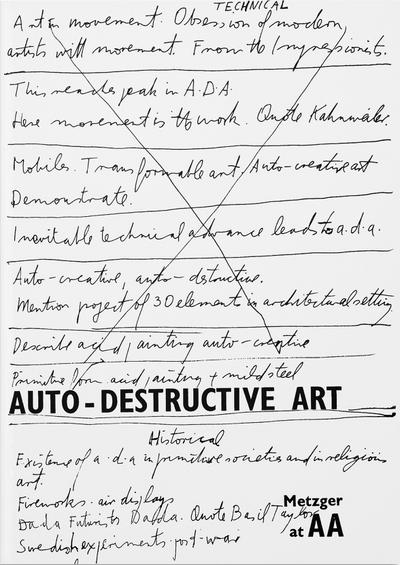 TECHNICAL
Art in movement. Obsession of modern
artists with movement. From the Impressionists.
This reaches peak in A.D.A.
Here movement is the work. Quote Kahnweiler.
Mobiles. Transformable art, Auto-creative art
Demonstrate.
Inevitable technical advance leads to a.d.a.
Auto-creative, auto-destructive.
Mention project of 30 element in architectural setting
Describe acid painting auto-creative
Primitive form acid painting + mild steel
AUTO-DESTRUCTIVE ART
Historical
Existence of a.d.a in primitive societies and in religious
art.
Fireworks. air displays
Dada Futurists Dadda. Quote Basil Taylor
Swedish experiments post-war
Metzger
at AA